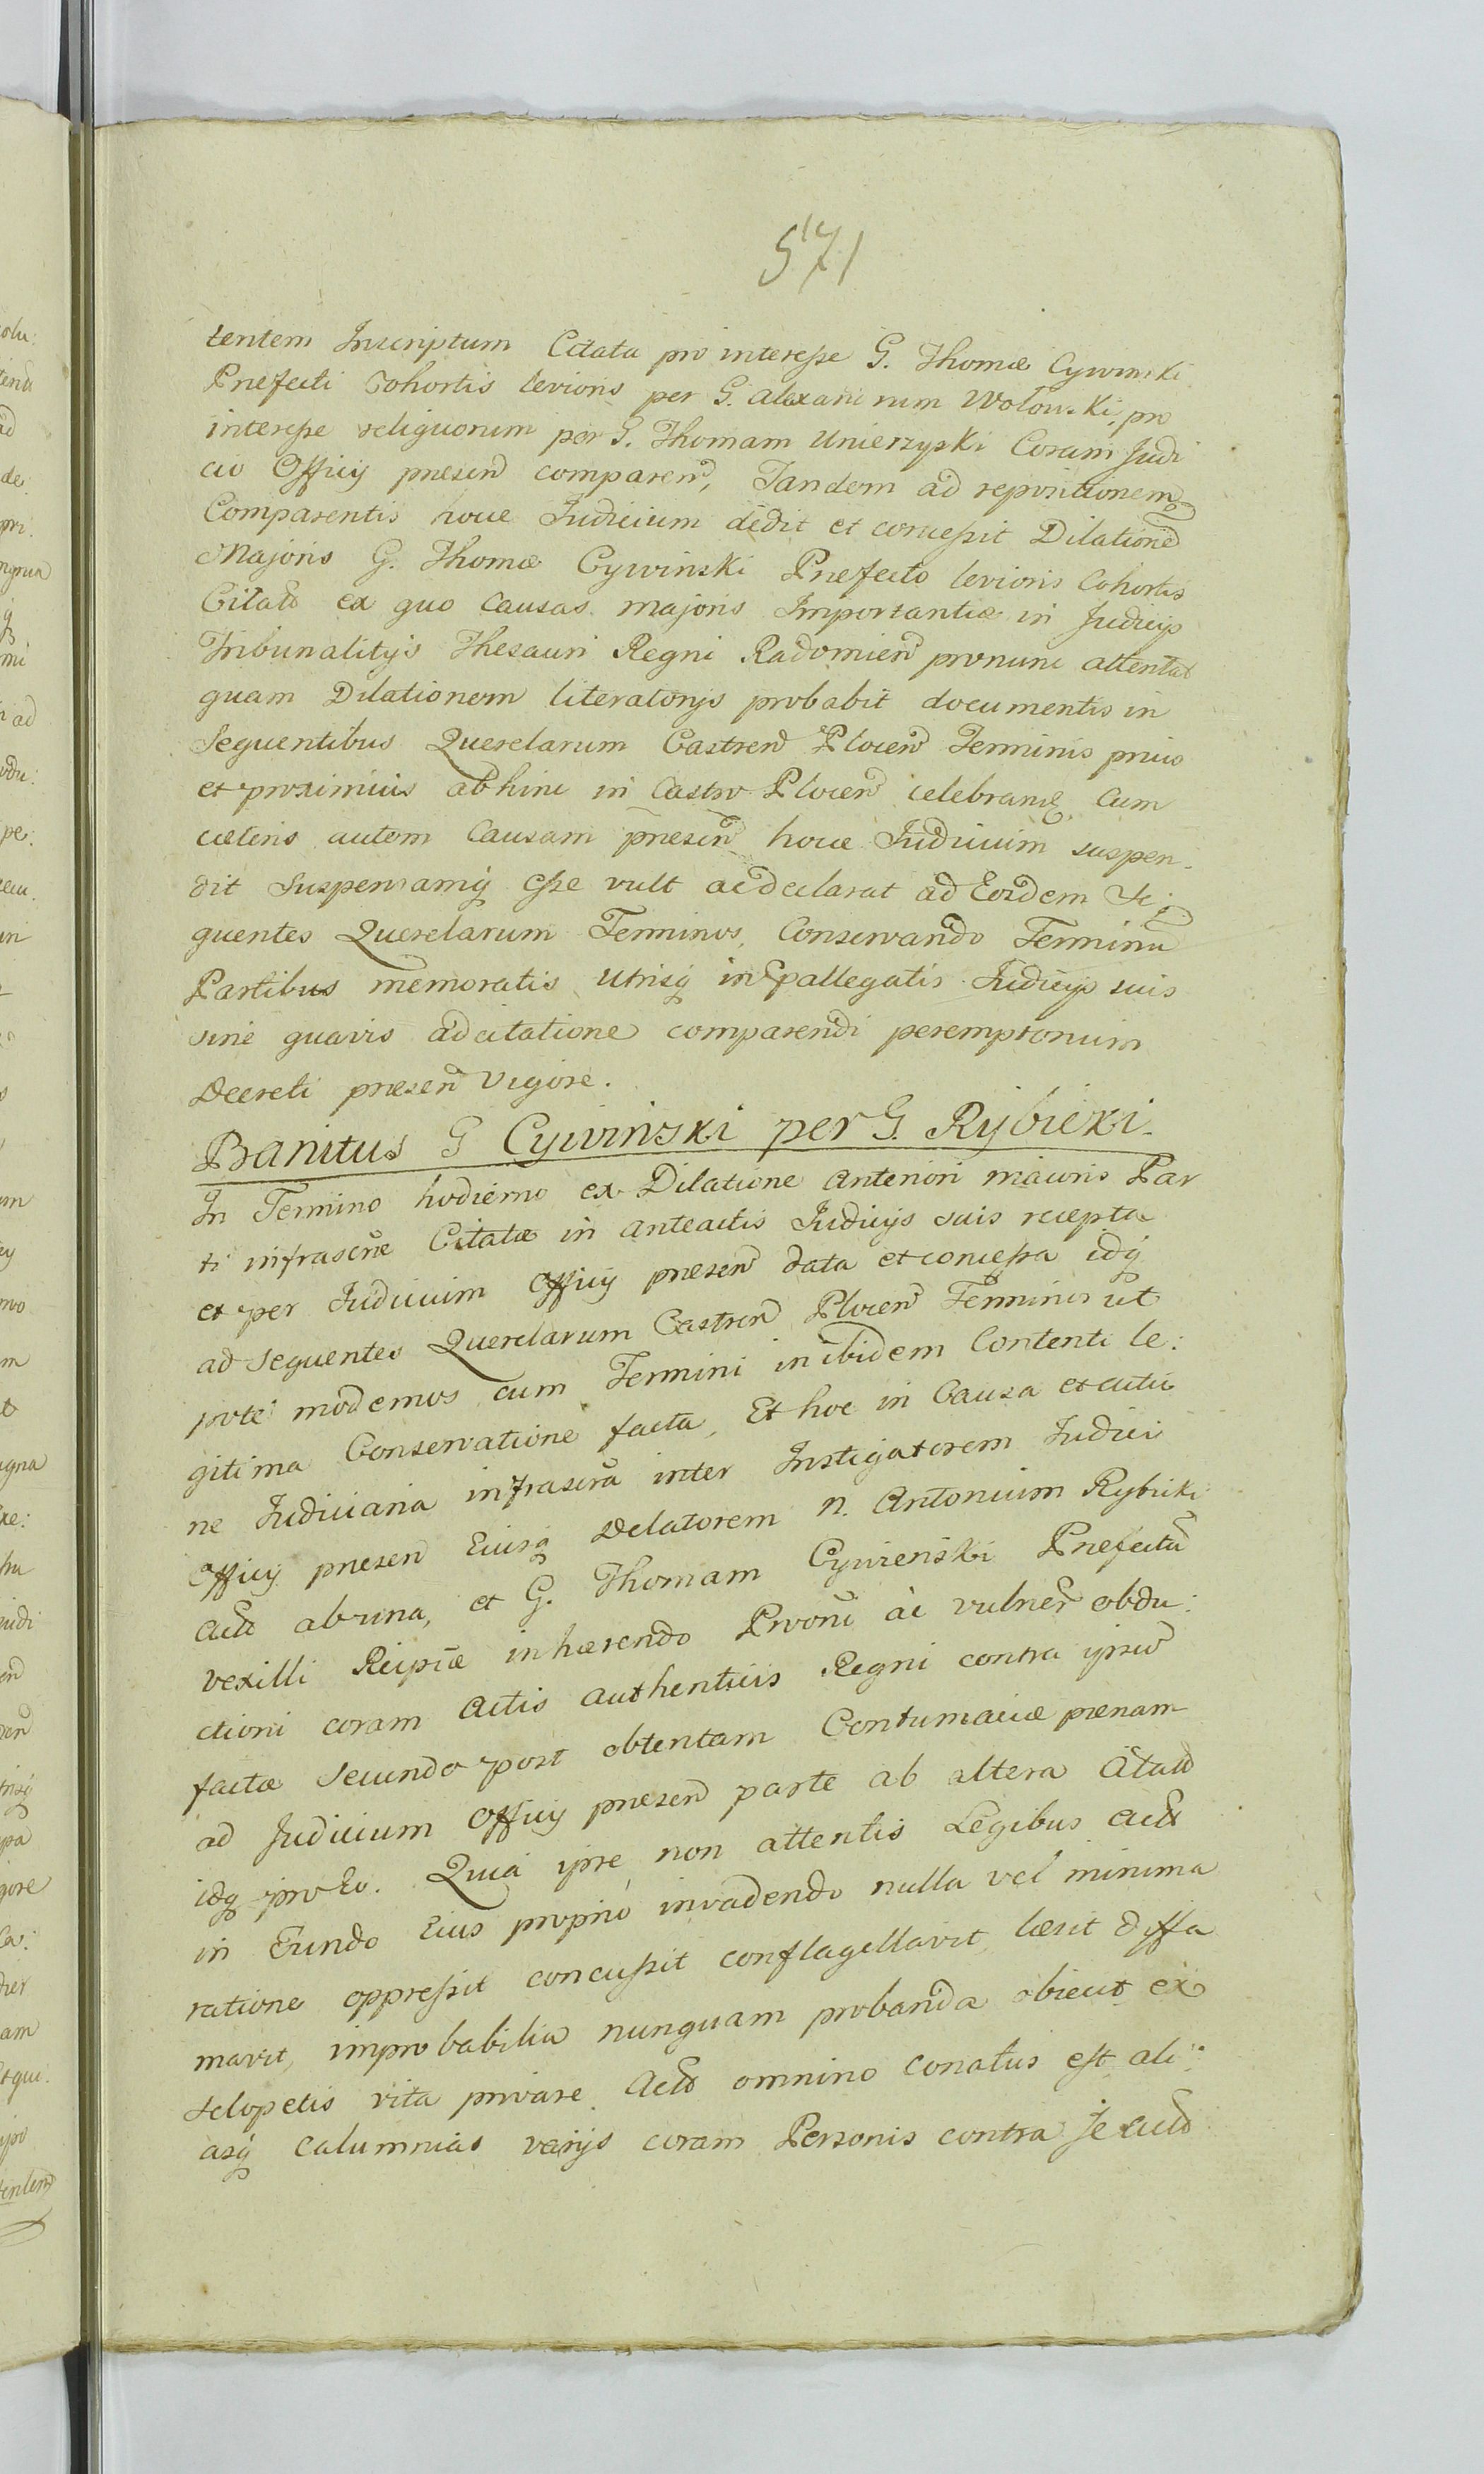 571
tentem Inscriptum Citata pro interesse G. Thomæ Cywinski
Præfecti Cohortis levioris per G. Alexandrum Wolowski, pro
interesse reliquorum per G. Thomam Unierzyski Coram Judi
cio Officij præsen comparen, Tandem ad repositionem
Comparentis hocce Judicium dedit et concessit Dilationē
Majoris G. Thomæ Cywinski Præfecto levioris Cohortis
Citato ex quo Causas majoris Importantiæ in Judicijs
Tribunalitijs Thesauri Regni Radomien pronunc attentat
quam Dilationem literatorijs probabit documentis in
Sequentibus Querelarum Castren Plocen Terminis prius
et proximius abhinc in Castro Plocen celebran, Cum
cæteris autem Causam præsen hocce Judicium suspen-
dit Suspensamq esse vult ac declarat ad Eosdem Se
quentes Querelarum Terminos, Conservando Terminū
Partibus memoratis Utrisq in præallegatis Judicijs suis
sine quavis adcitatione comparendi peremptorium
Decreti præsen Vigore.
Banitus G Cywinski per G. Rybicki.
In Termino hodierno ex Dilatione Anteriori maioris Par
ti infrascræ Citatæ in anteactis Judicijs suis recepta
et per Judicium Officij præsen data et concessa idq
ad sequentes Querelarum Castren Plocen Terminos ut
pote modernos cum Termini inibidem Contenti le:
gitima Conservatione facta, Et hoc in Causa et actio
ne Judiciaria infrascra inter Instigatorem Judici
Officij præsen Eiusq Delatorem N. Antonium Rybicki
Acto ab una, et G. Thomam Cywienski Præfectū
Vexilli Reipcæ inhærendo Proñi ac vulner obdu:
ctioni coram Actis Authenticis Regni contra ipsū
factæ Secundo post obtentam Contumaciæ pænam
ad Judicium Officij præsen parte ab altera Citato
idq pro Eo. Quia ipse non attentis Legibus Acto
in Fundo Eius proprio invadendo nulla vel minima
ratione oppressit concussit conflagellavit læsit diffa
mavit, improbabilia nunquam probanda obiecit ex
sclopetis vita privare Acto omnino conatus est ali:
asq calumnias varijs coram Personis contra se Acto